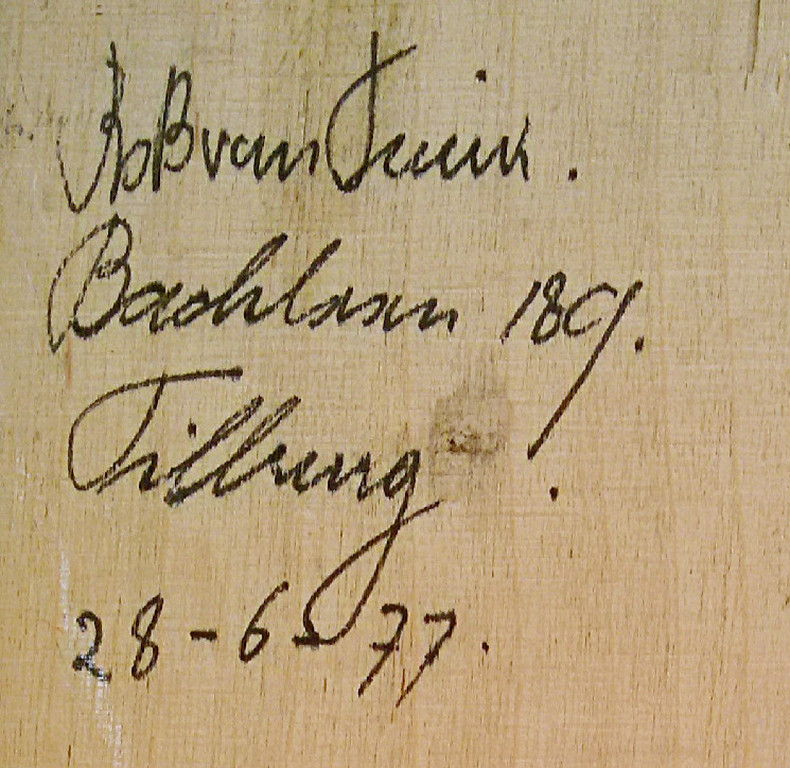 Rob van
Bachlaan 189.
Tilburg.
28-6-77.